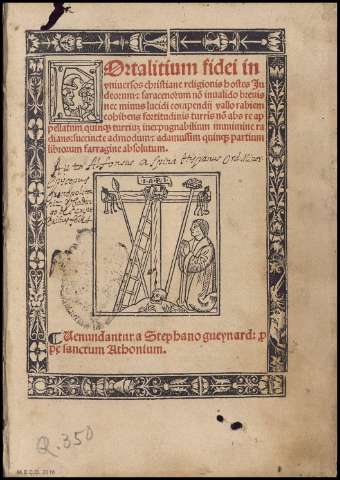 Fortalitium fidei in
vniuersos christiane religionis hostes Ju
deorum: saracenorum nō inualido breuis
nec minus lucidi compendij vallo rabiem
cohibens fortitudinis turris nō abs re ap
pellatum quinqз turrium inexpugnabilium munimine ra
dians: succincte admodum: adamussim quinqз partium
librorum farragine absolutum.
Alfonsus a Spina Hispanus
I N R I
Venundantur a Stephano gueynard: p
pe sanctum Anthonium.
Q. 350